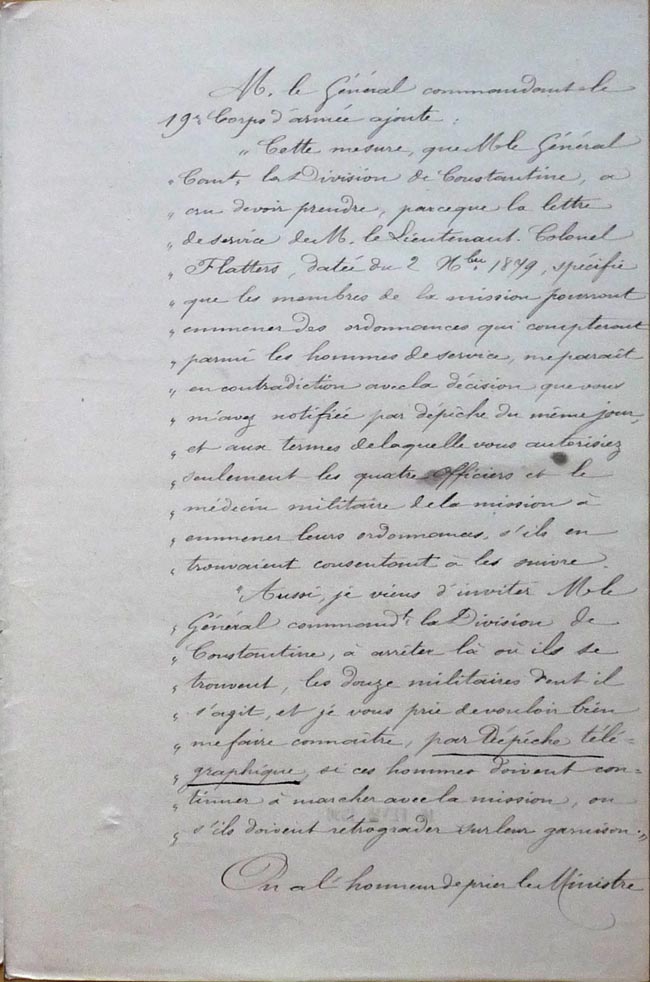 M. le Général commandant le
19e Corps d'armée ajoute :
"Cette mesure, que M. le Général
" Comt. la Division de Constantine, a
" cru devoir prendre, parceque la lettre
" de service de M. le Lieutenant-Colonel
" Flatters, datée du 2 Xbre 1879, spécifie
" que les membres de la mission pourront
" emmener des ordonnances qui compteront
" parmi les hommes de service, me paraît
" en contradiction avec la décision que vous
" m'avez notifiée par dépêche du même jour,
" et aux termes de laquelle vous autorisiez
" seulement les quatre officiers et le
" médecin militaire de la mission à
" emmener leurs ordonnances, s'ils en
" trouvaient consentant à les suivre.
"Aussi, je viens d'inviter M. le
" Général commandt. la Division de
" Constantine, à arrêter là où ils se
" trouvent, les douze militaires dont il
" s'agit, et je vous prie de vouloir bien
" me faire connaître, par Dépêche télé-
" graphique, si ces hommes doivent con-
" tinuer à marcher avec la mission, ou
" s'ils doivent retrograder sur leur garnison."
On a l'honneur de prier le Ministre